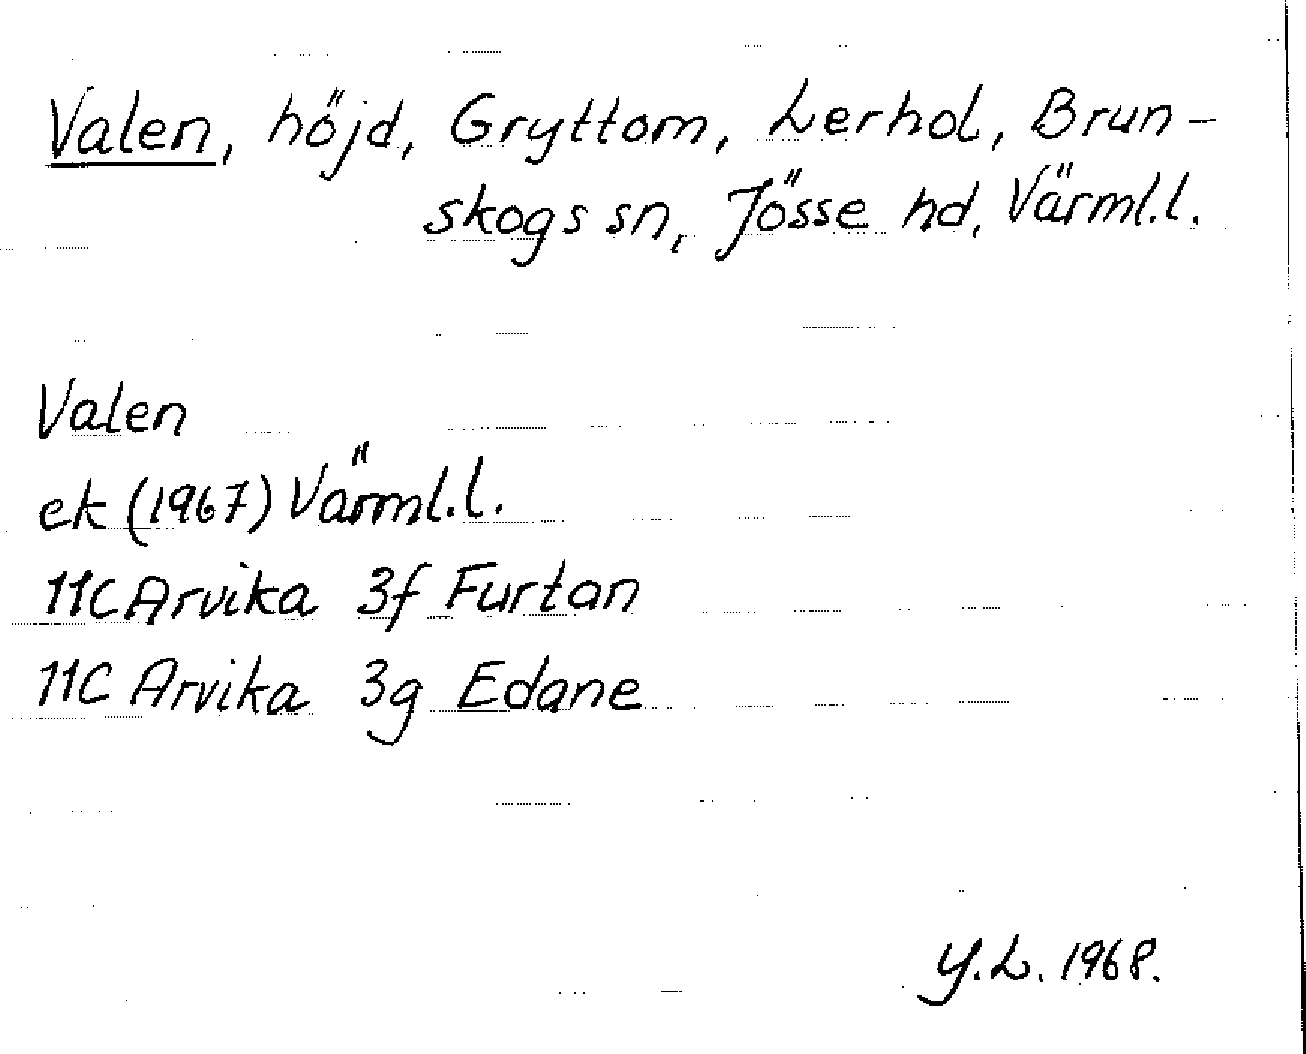 Valen, höjd, Gryttom, Lerhol, Brun-
skogs sn, Jösse hd, Värml.l.
Valen
ek (1967) Värml.l.
11C Arvika 3f Furtan
11C Arvika 3g Edane
Y.L. 1968.